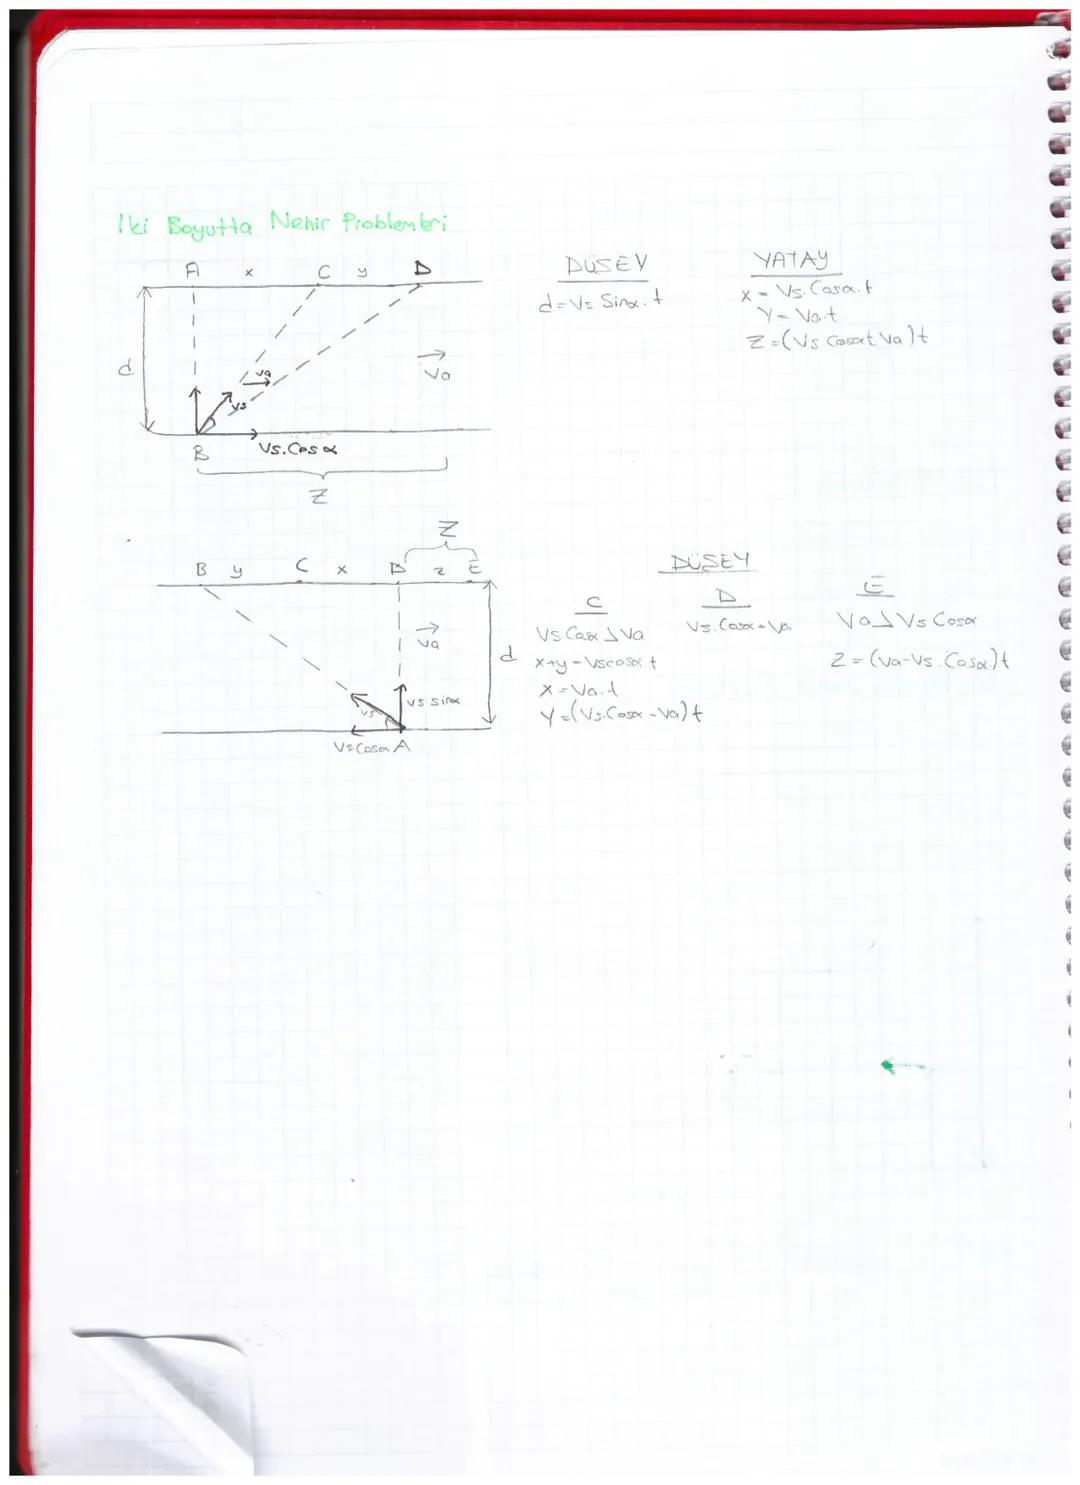 Iki Boyutta Nehir Problemleri
A x C y D
DÜŞEY
d = Vs Sinα.t
YATAY
x = Vs.Cosα.t
Y = Va.t
Z = (Vs Cosα+Va)t
d
Va
Vs
Va
B
Vs.Cosα
Z
Z
B y C x D z E
DÜŞEY
C
Vs Cosα > Va
x+y = Vscosα t
X = Va.t
Y = (Vs.Cosα - Va)t
D
Vs.Cosα = Va
E
Va > Vs Cosα
Z = (Va-Vs.Cosα)t
Va
d
Vs
Vs Sinα
Vs Cosα A